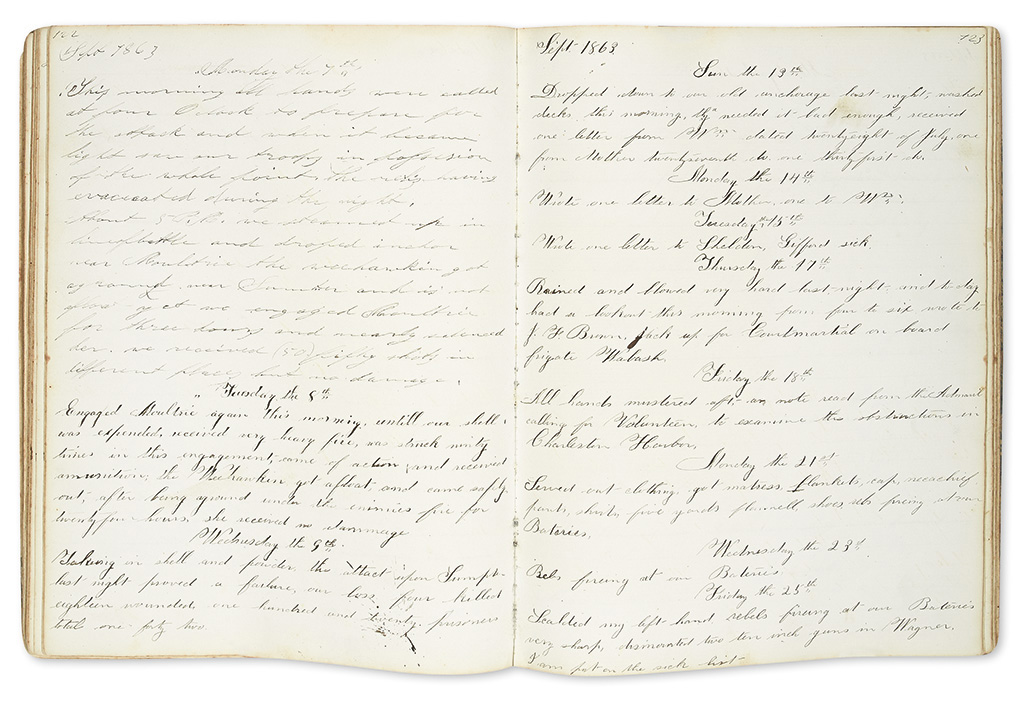 122
Sept 1863
Monday the 7th
This morning all hands were called
at four Oclock to prepare for
the attack and when it became
light saw our troops in possession
of the whole point, the rebs having
evacuated during the night,
about 5 P.M. we steamed up in
line of battle and droped anchor
near Moultrie the weehawkin got
aground near Sumter and is not
yet we engaged Moultrie
for three hours and nearly silenced
her. we received (50) fifty shots in
different places but no damage.
" Tuesday the 8th
Engaged Moultrie again this morning, untill our shell
was expended, received very heavy fire, was struck ninty
times in this engagement, came of action, and received
amunition, the Weehawkin got afloat, and came safely
out, after being aground under the enemies fire for
twenty four hours, she received no dammage
Wednesday the 9th.
Takeing in shell and powder, the attact upon Sumpt-
last night proved a failure, our loss, four killed
eighteen wounded, one hundred and twenty prisoners
total one forty two.
123
Sept 1863
Sun the 13th
Dropped down to our old anchorage last night, washed
decks, this morning, they needed it bad enough, received
one letter from Wm dated twentyeight of July, one
from Mother twentyseventh do. one thirtyfirst do.
Monday the 14th
Wrote one letter to Mother, one to Wm.
Tuesday the 15th
Wrote one letter to Shelden, Gifford sick.
Thursday the 17th
Rained and blowed very hard last night and to day
had a lookout this morning from four to six wrote to
J. F. Brown, Jack up for Courtmartial on board
frigate Wabash.
Friday the 18th
All hands mustered aft, an note read from the Admiral
calling for Volunteers, to examine the obstructions in
Charleston Harbor,
Monday the 21th
Served out clothing, got matress, blankets, cap, neckachief
pants, shirts, five yards flannell, shoes, rebs fireing at our
Bateries,
Wednesday the 23th
Rebs fireing at our Bateries
Friday the 25th
Scalded my left hand rebels fireing at our Bateries
very sharp, dismounted two ten inch guns in Wagner.
I am put on the sick list